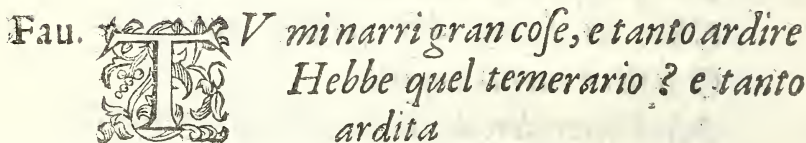 Fau. TV mi narri gran coſe, e tanto ardire
Hebbe quel temerario ? e tanto
ardita